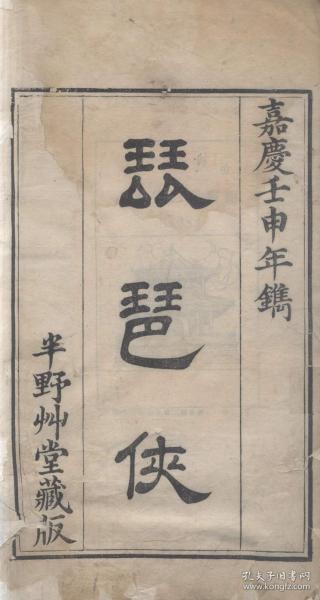 嘉慶壬申年鐫
琵琶俠
半野艸堂藏版
孔夫子旧书网